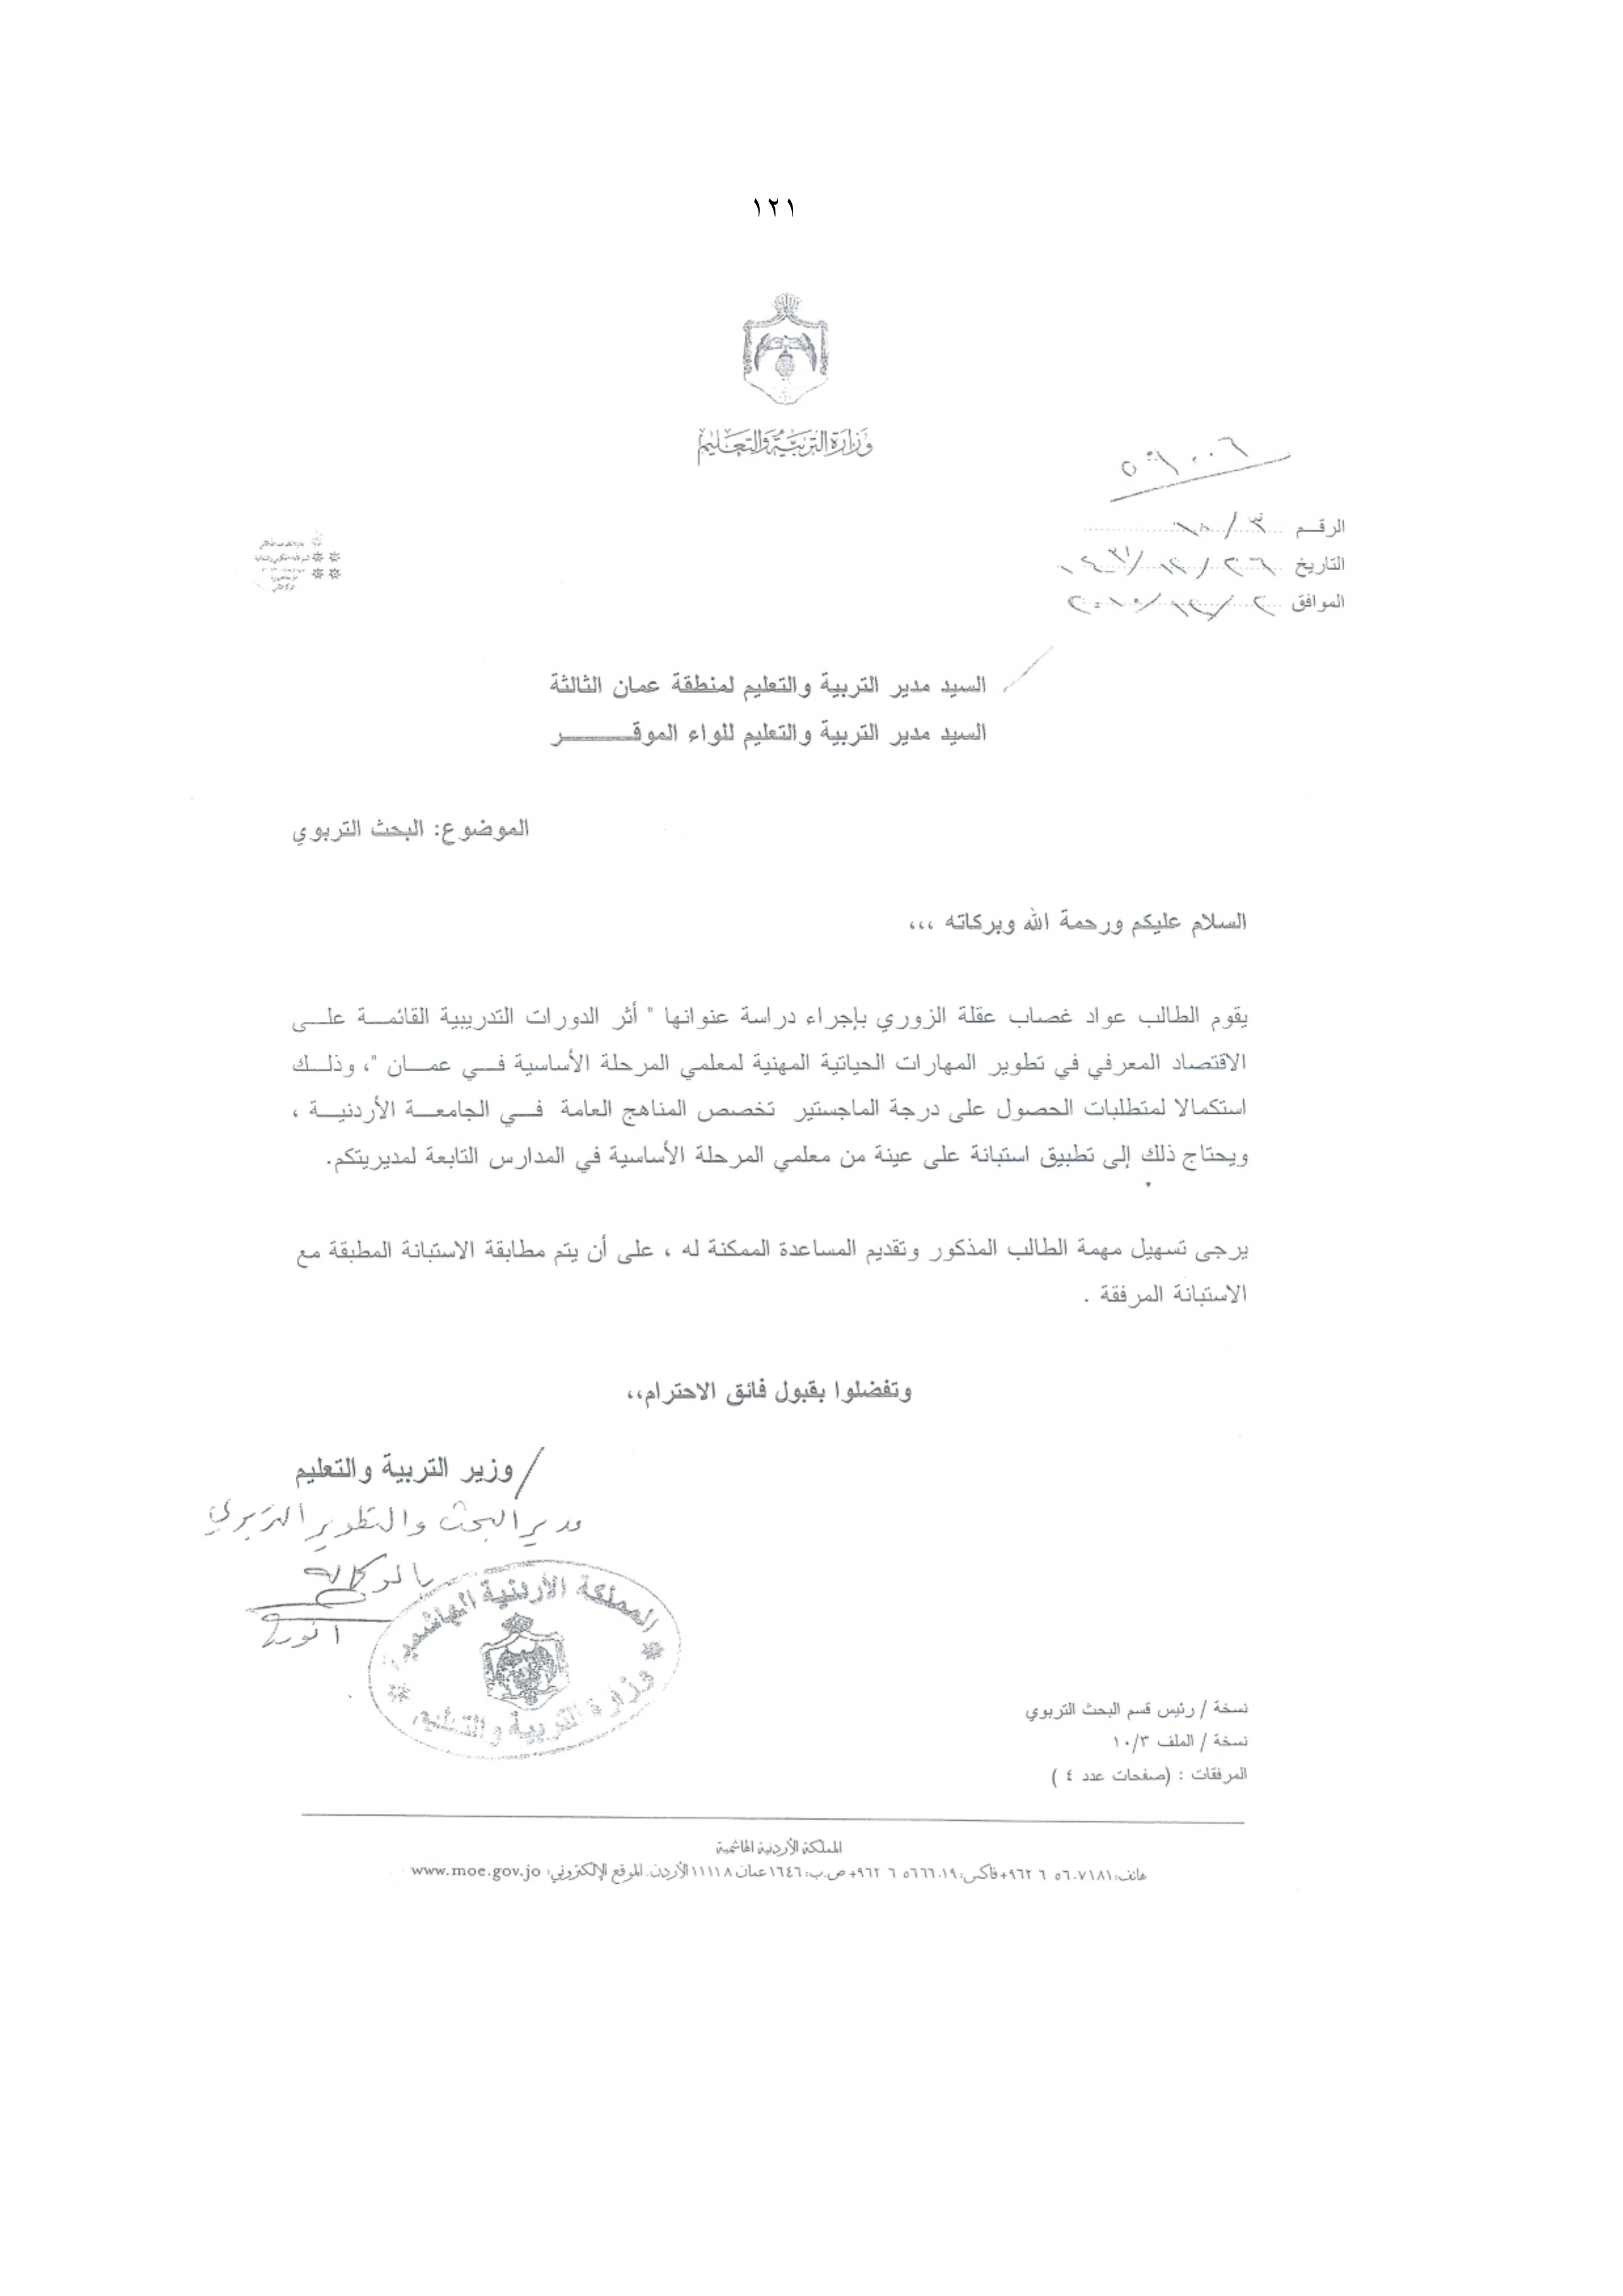 ١٢١
وزارة التربية والتعليم
٥٩٠٠٦
الرقم ١٠/٣
التاريخ ١٤٣١/١٢/٢٦
الموافق ٢٠١٠/١٢/٢
السيد مدير التربية والتعليم لمنطقة عمان الثالثة
السيد مدير التربية والتعليم للواء الموقـــــــر
الموضوع: البحث التربوي
السلام عليكم ورحمة الله وبركاته ،،،
يقوم الطالب عواد غصاب عقلة الزوري بإجراء دراسة عنوانها " أثر الدورات التدريبية القائمـــة علـــى
الاقتصاد المعرفي في تطوير المهارات الحياتية المهنية لمعلمي المرحلة الأساسية فـــي عمـــان "، وذلـــك
استكمالا لمتطلبات الحصول على درجة الماجستير تخصص المناهج العامة فـــي الجامعـــة الأردنيـــة ،
ويحتاج ذلك إلى تطبيق استبانة على عينة من معلمي المرحلة الأساسية في المدارس التابعة لمديريتكم.
يرجى تسهيل مهمة الطالب المذكور وتقديم المساعدة الممكنة له ، على أن يتم مطابقة الاستبانة المطبقة مع
الاستبانة المرفقة .
وتفضلوا بقبول فائق الاحترام،،
/ وزير التربية والتعليم
مدير البحث والتطوير التربوي
بالوكالة
المملكة الأردنية الهاشمية
وزارة التربية والتعليم
نسخة / رئيس قسم البحث التربوي
نسخة / الملف ١٠/٣
المرفقات : (صفحات عدد ٤ )
المملكة الأردنية الهاشمية
هاتف: ٥٦٠٧١٨١ ٦ ٩٦٢+ فاكس: ٥٦٦٦٠١٩ ٦ ٩٦٢+ ص.ب: ١٦٤٦ عمان ١١١١٨ الأردن. الموقع الإلكتروني: www.moe.gov.jo